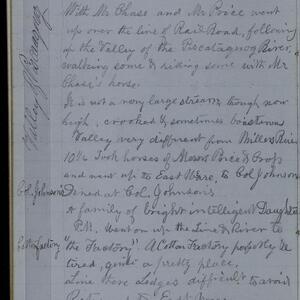 With Mr Chase and Mr Price went
up over the line of Rail Road, following
up the Valley of the Piscataquog River,
walking some & riding some with Mr
Chase's horse.
It is not a very large stream though now
high, crooked & sometimes boisterous
Valley very different from Millers River
10½ Took horses of Messrs Price &
and went up to East Ware, to Col Johnsons
Col. Johnsons
Dined at Col. Johnson's
A family of bright intelligent Daughters
P.M. went on up the Line & River to
Factory
"the Factory". A Cotton Factory
quite a pretty place.
Line here Ledges difficult to avoid